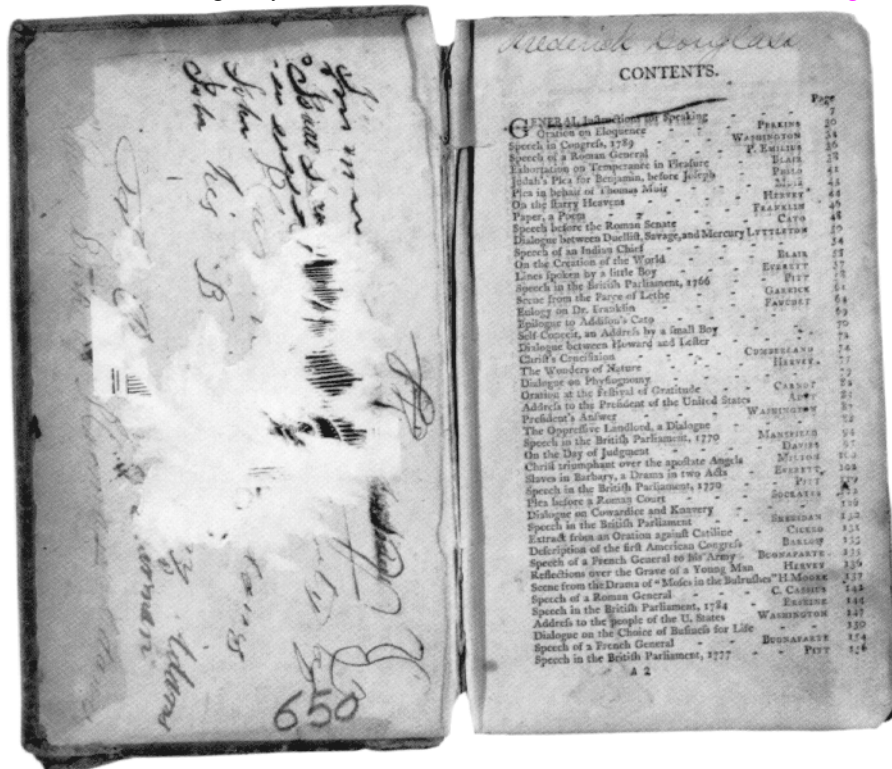 John his B
650
Frederick Douglass
CONTENTS.
Page
GENERAL Instructions for Speaking - - 7
Oration on Eloquence - - PERKINS 30
Speech in Congress, 1789 - - WASHINGTON 34
Speech of a Roman General - - P. EMILIUS 36
Exhortation on Temperance in Pleasure - BLAIR 38
Judah's Plea for Benjamin, before Joseph - PHILO 41
Plea in behalf of Thomas Muir - - MUIR 43
On the starry Heavens - - HERVEY 44
Paper, a Poem - - FRANKLIN 46
Speech before the Roman Senate - - CATO 48
Dialogue between Duellist, Savage, and Mercury LYTTLETON 50
Speech of an Indian Chief - - 54
On the Creation of the World - - BLAIR
Lines spoken by a little Boy - - EVERETT 57
Speech in the British Parliament, 1766 - - PITT 58
Scene from the Farce of Lethe - - GARRICK 61
Eulogy on Dr. Franklin - - FAUCHET 64
Epilogue to Addison's Cato - - 69
Self-Conceit, an Address by a small Boy - - 70
Dialogue between Howard and Lester - - 72
Christ's Crucifixion - - CUMBERLAND 74
The Wonders of Nature - - HERVEY 77
Dialogue on Physiognomy - - 79
Oration at the Festival of Gratitude - - CARNOT 82
Address to the President of the United States - ADET 85
President's Answer - - WASHINGTON 87
The Oppressive Landlord, a Dialogue - - 88
Speech in the British Parliament, 1770 - - MANSFIELD 94
On the Day of Judgment - - DAVIES 97
Christ triumphant over the apostate Angels - MILTON
Slaves in Barbary, a Drama in two Acts - EVERETT 102
Speech in the British Parliament, 1770 - - PITT 119
Plea before a Roman Court - - SOCRATES 122
Dialogue on Cowardice and Knavery - - 126
Speech in the British Parliament - - SHERIDAN
Extract from an Oration against Catiline - CICERO 131
Description of the first American Congress - BARLOW 133
Speech of a French General to his Army - BUONAPARTE 135
Reflections over the Grave of a Young Man - HERVEY 136
Scene from the Drama of "Moses in the Bulrushes" H. MOORE 137
Speech of a Roman General - - C. CASSIUS 142
Speech in the British Parliament, 1784 - - ERSKINE 144
Address to the people of the U. States - WASHINGTON 147
Dialogue on the Choice of Business for Life - - 150
Speech of a French General - - BUONAPARTE 154
Speech in the British Parliament, 1777 - - PITT 156
A 2